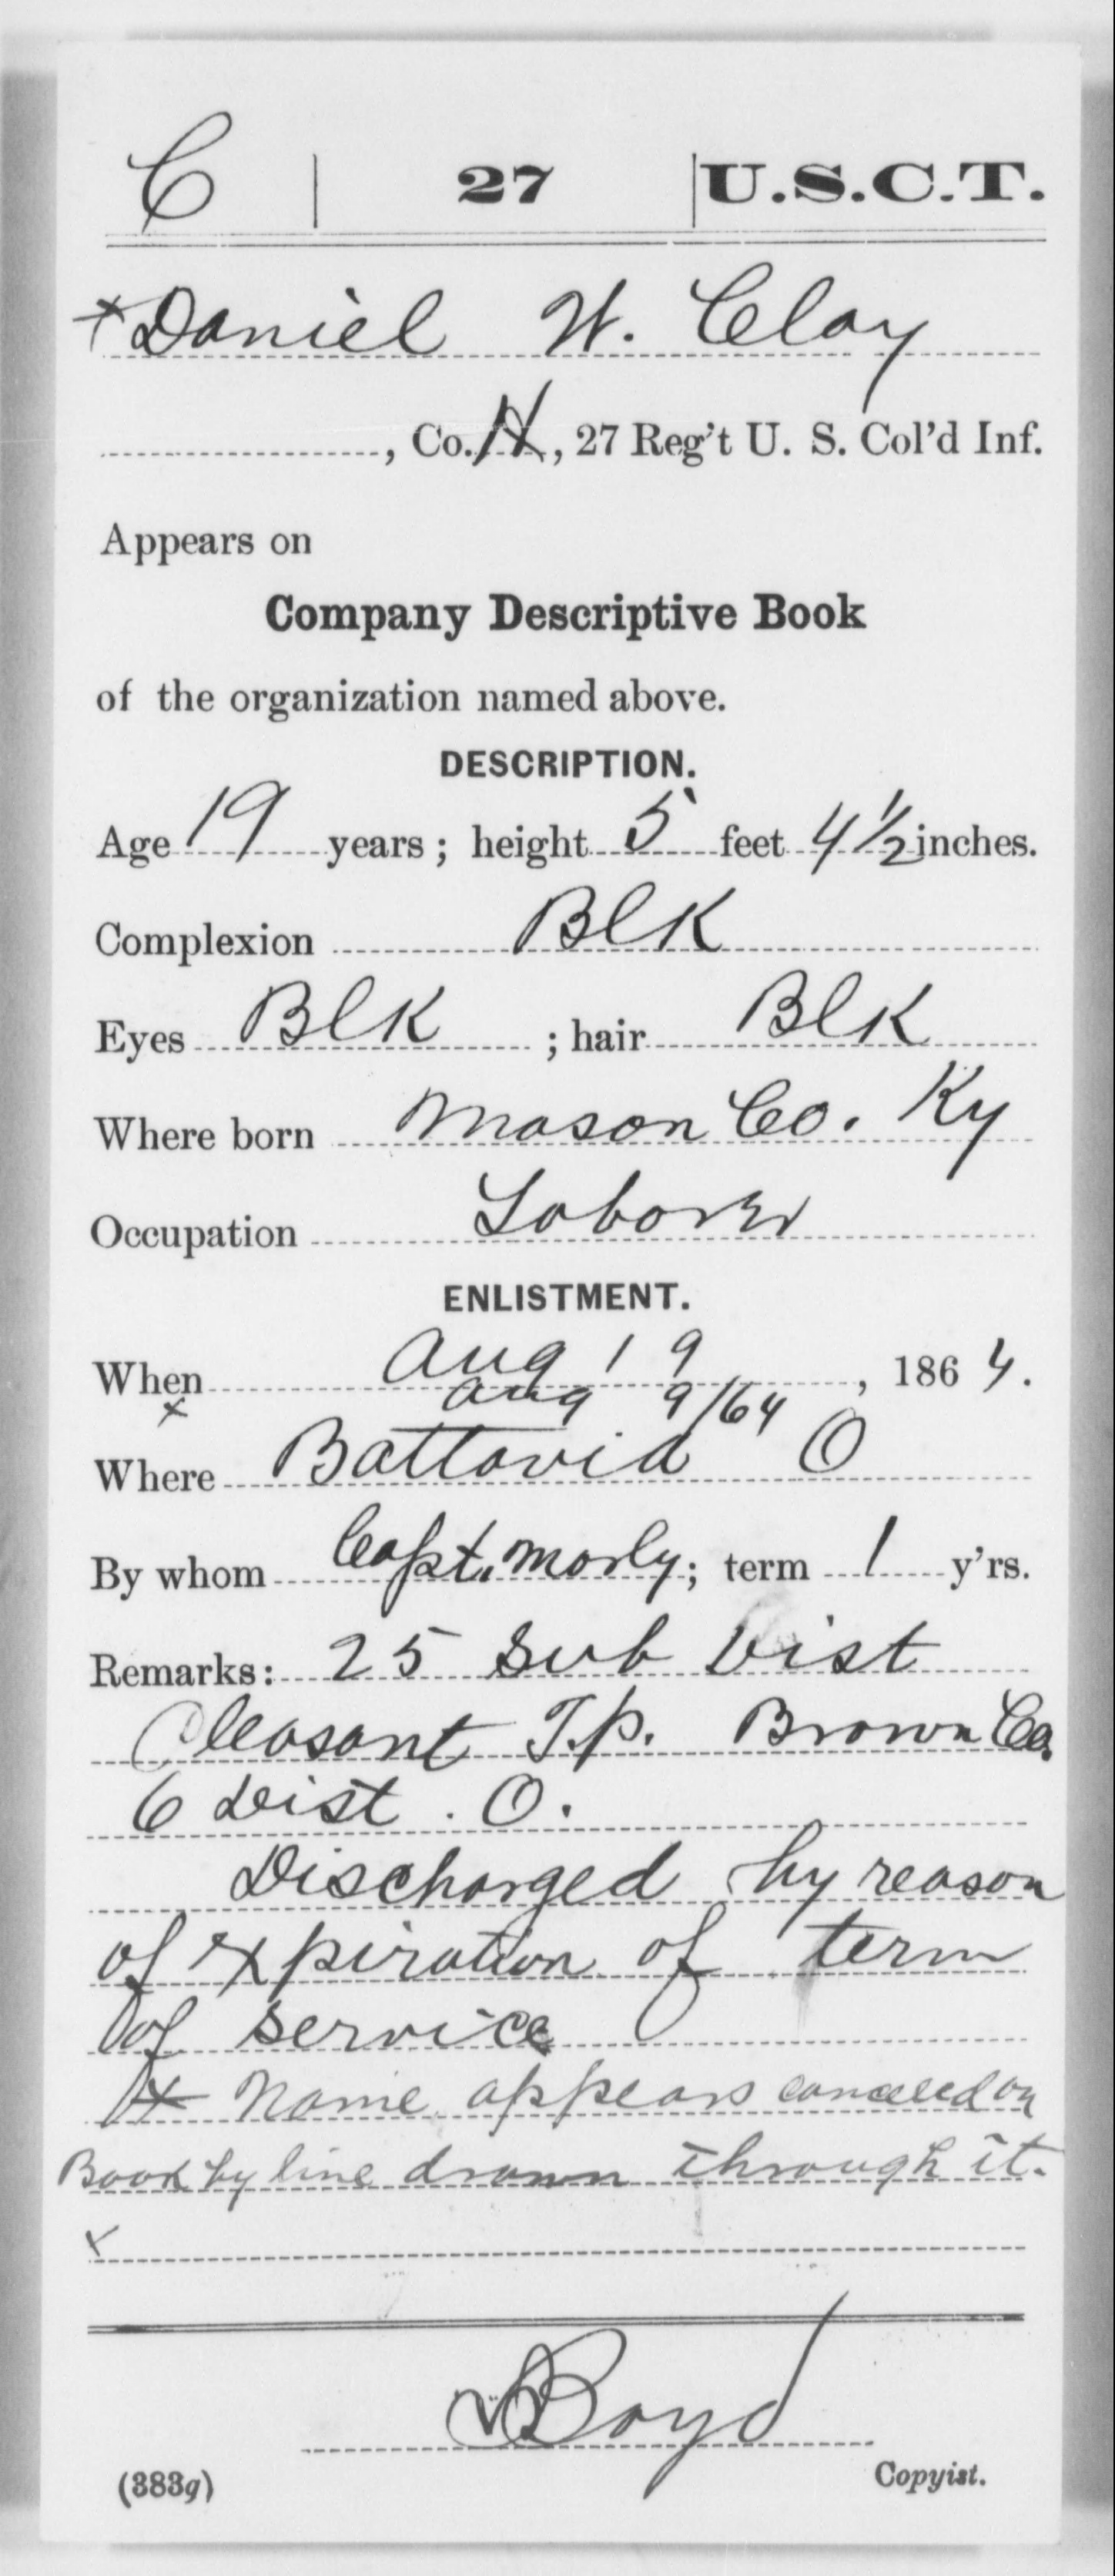 C | 27 | U.S.C.T.
x Daniel W. Clay
, Co. H, 27 Reg't U. S. Col'd Inf.
Appears on
Company Descriptive Book
of the organization named above.
DESCRIPTION.
Age 19 years; height 5 feet 4 1/2 inches.
Complexion Blk
Eyes Blk ; hair Blk
Where born Mason Co. Ky
Occupation Laborer
ENLISTMENT.
When Aug 19, 1864.
x Aug 9/64
Where Battavia O
By whom Capt. Morly; term 1 y'rs.
Remarks: 25 Sub Dist
Pleasant T.p. Brown Co.
6 Dist. O.
Discharged by reason
of expiration of term
of service
x Name appears canceled on
Book by line drawn through it.
x
Boyd
(383g) Copyist.